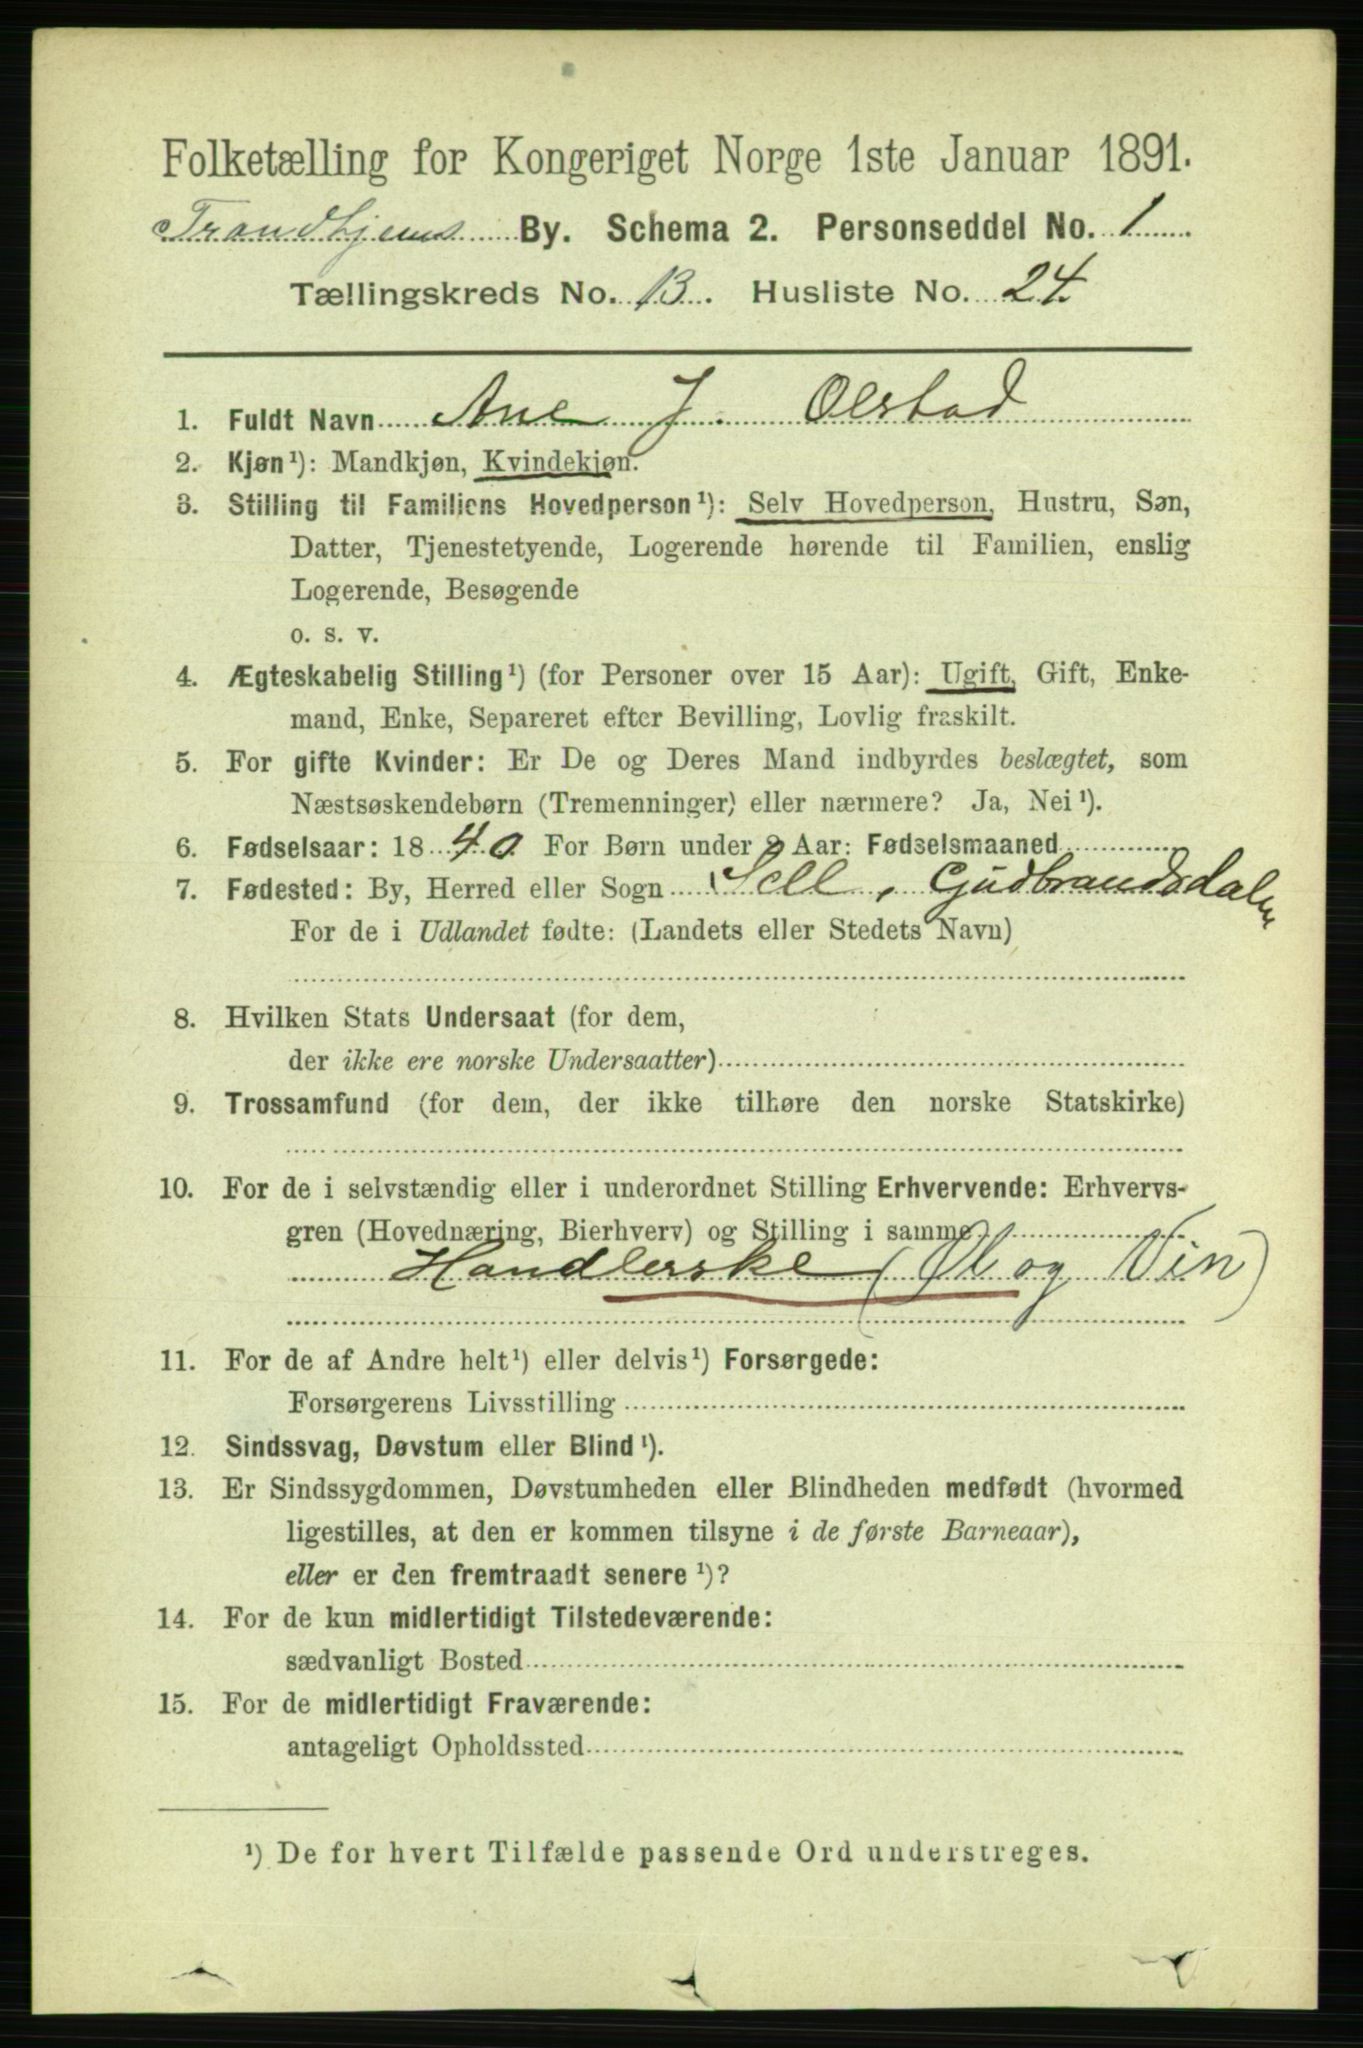 Folketælling for Kongeriget Norge 1ste Januar 1891.
Trondhjems By. Schema 2. Personseddel No. 1
Tællingskreds No. 13. Husliste No. 24.
1. Fuldt Navn Ane J. Olstad
2. Kjøn¹): Mandkjøn, Kvindekjøn.
3. Stilling til Familiens Hovedperson¹): Selv Hovedperson, Hustru, Søn,
Datter, Tjenestetyende, Logerende hørende til Familien, enslig
Logerende, Besøgende
o. s. v.
4. Ægteskabelig Stilling¹) (for Personer over 15 Aar): Ugift, Gift, Enke-
mand, Enke, Separeret efter Bevilling, Lovlig fraskilt.
5. For gifte Kvinder: Er De og Deres Mand indbyrdes beslægtet, som
Næstsøskendebørn (Tremenninger) eller nærmere? Ja, Nei¹).
6. Fødselsaar: 1840. For Børn under 2 Aar: Fødselsmaaned
7. Fødested: By, Herred eller Sogn Sell, Gudbrandsdalen
For de i Udlandet fødte: (Landets eller Stedets Navn)
8. Hvilken Stats Undersaat (for dem,
der ikke ere norske Undersaatter)
9. Trossamfund (for dem, der ikke tilhøre den norske Statskirke)
10. For de i selvstændig eller i underordnet Stilling Erhvervende: Erhvervs-
gren (Hovednæring, Bierhverv) og Stilling i samme
Handlerske (Øl og Vin)
11. For de af Andre helt¹) eller delvis¹) Forsørgede:
Forsørgerens Livsstilling
12. Sindssvag, Døvstum eller Blind¹).
13. Er Sindssygdommen, Døvstumheden eller Blindheden medfødt (hvormed
ligestilles, at den er kommen tilsyne i de første Barneaar),
eller er den fremtraadt senere¹)?
14. For de kun midlertidigt Tilstedeværende:
sædvanligt Bosted
15. For de midlertidigt Fraværende:
antageligt Opholdssted
¹) De for hvert Tilfælde passende Ord understreges.